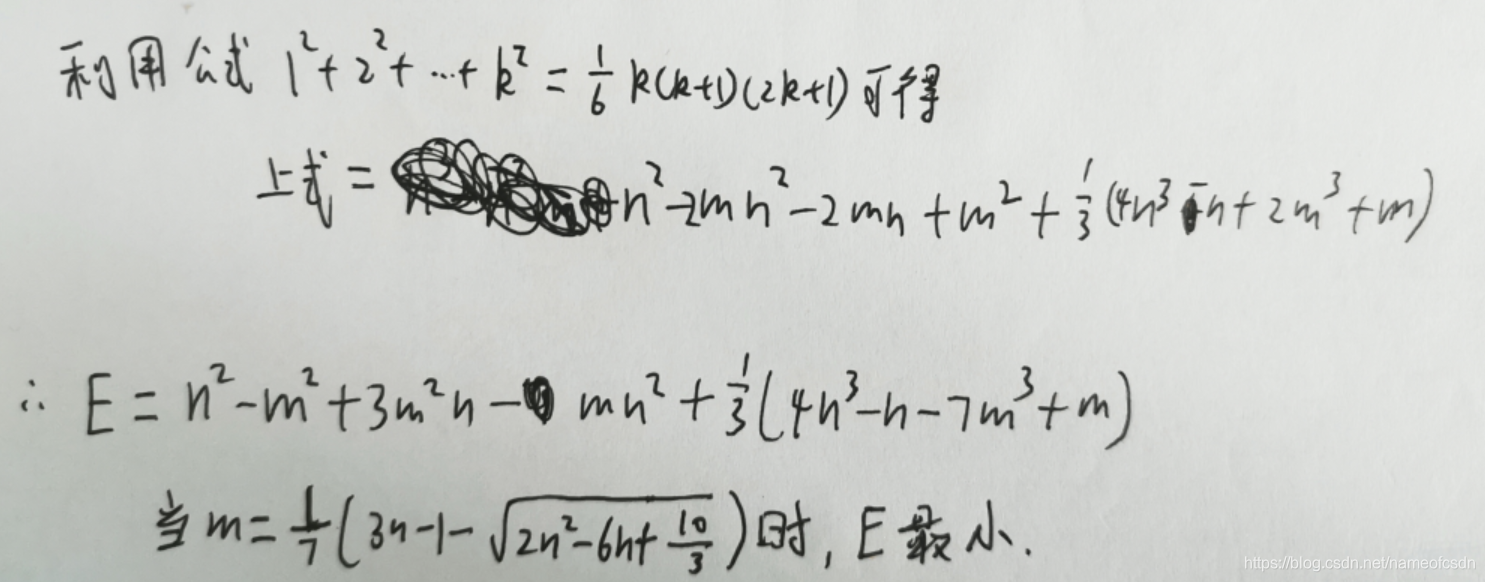 利用公式 1²+2²+…+k² = 1/6 k(k+1)(2k+1) 可得
上式 = n²-2mn²-2mn+m²+1/3(4n³-n+2m³+m)
∴ E = n²-m²+3m²n-mn²+1/3(4n³-n-7m³+m)
当 m = 1/7(3n-1-√(2n²-6n+10/3)) 时, E 最小.
https://blog.csdn.net/nameofcsdn